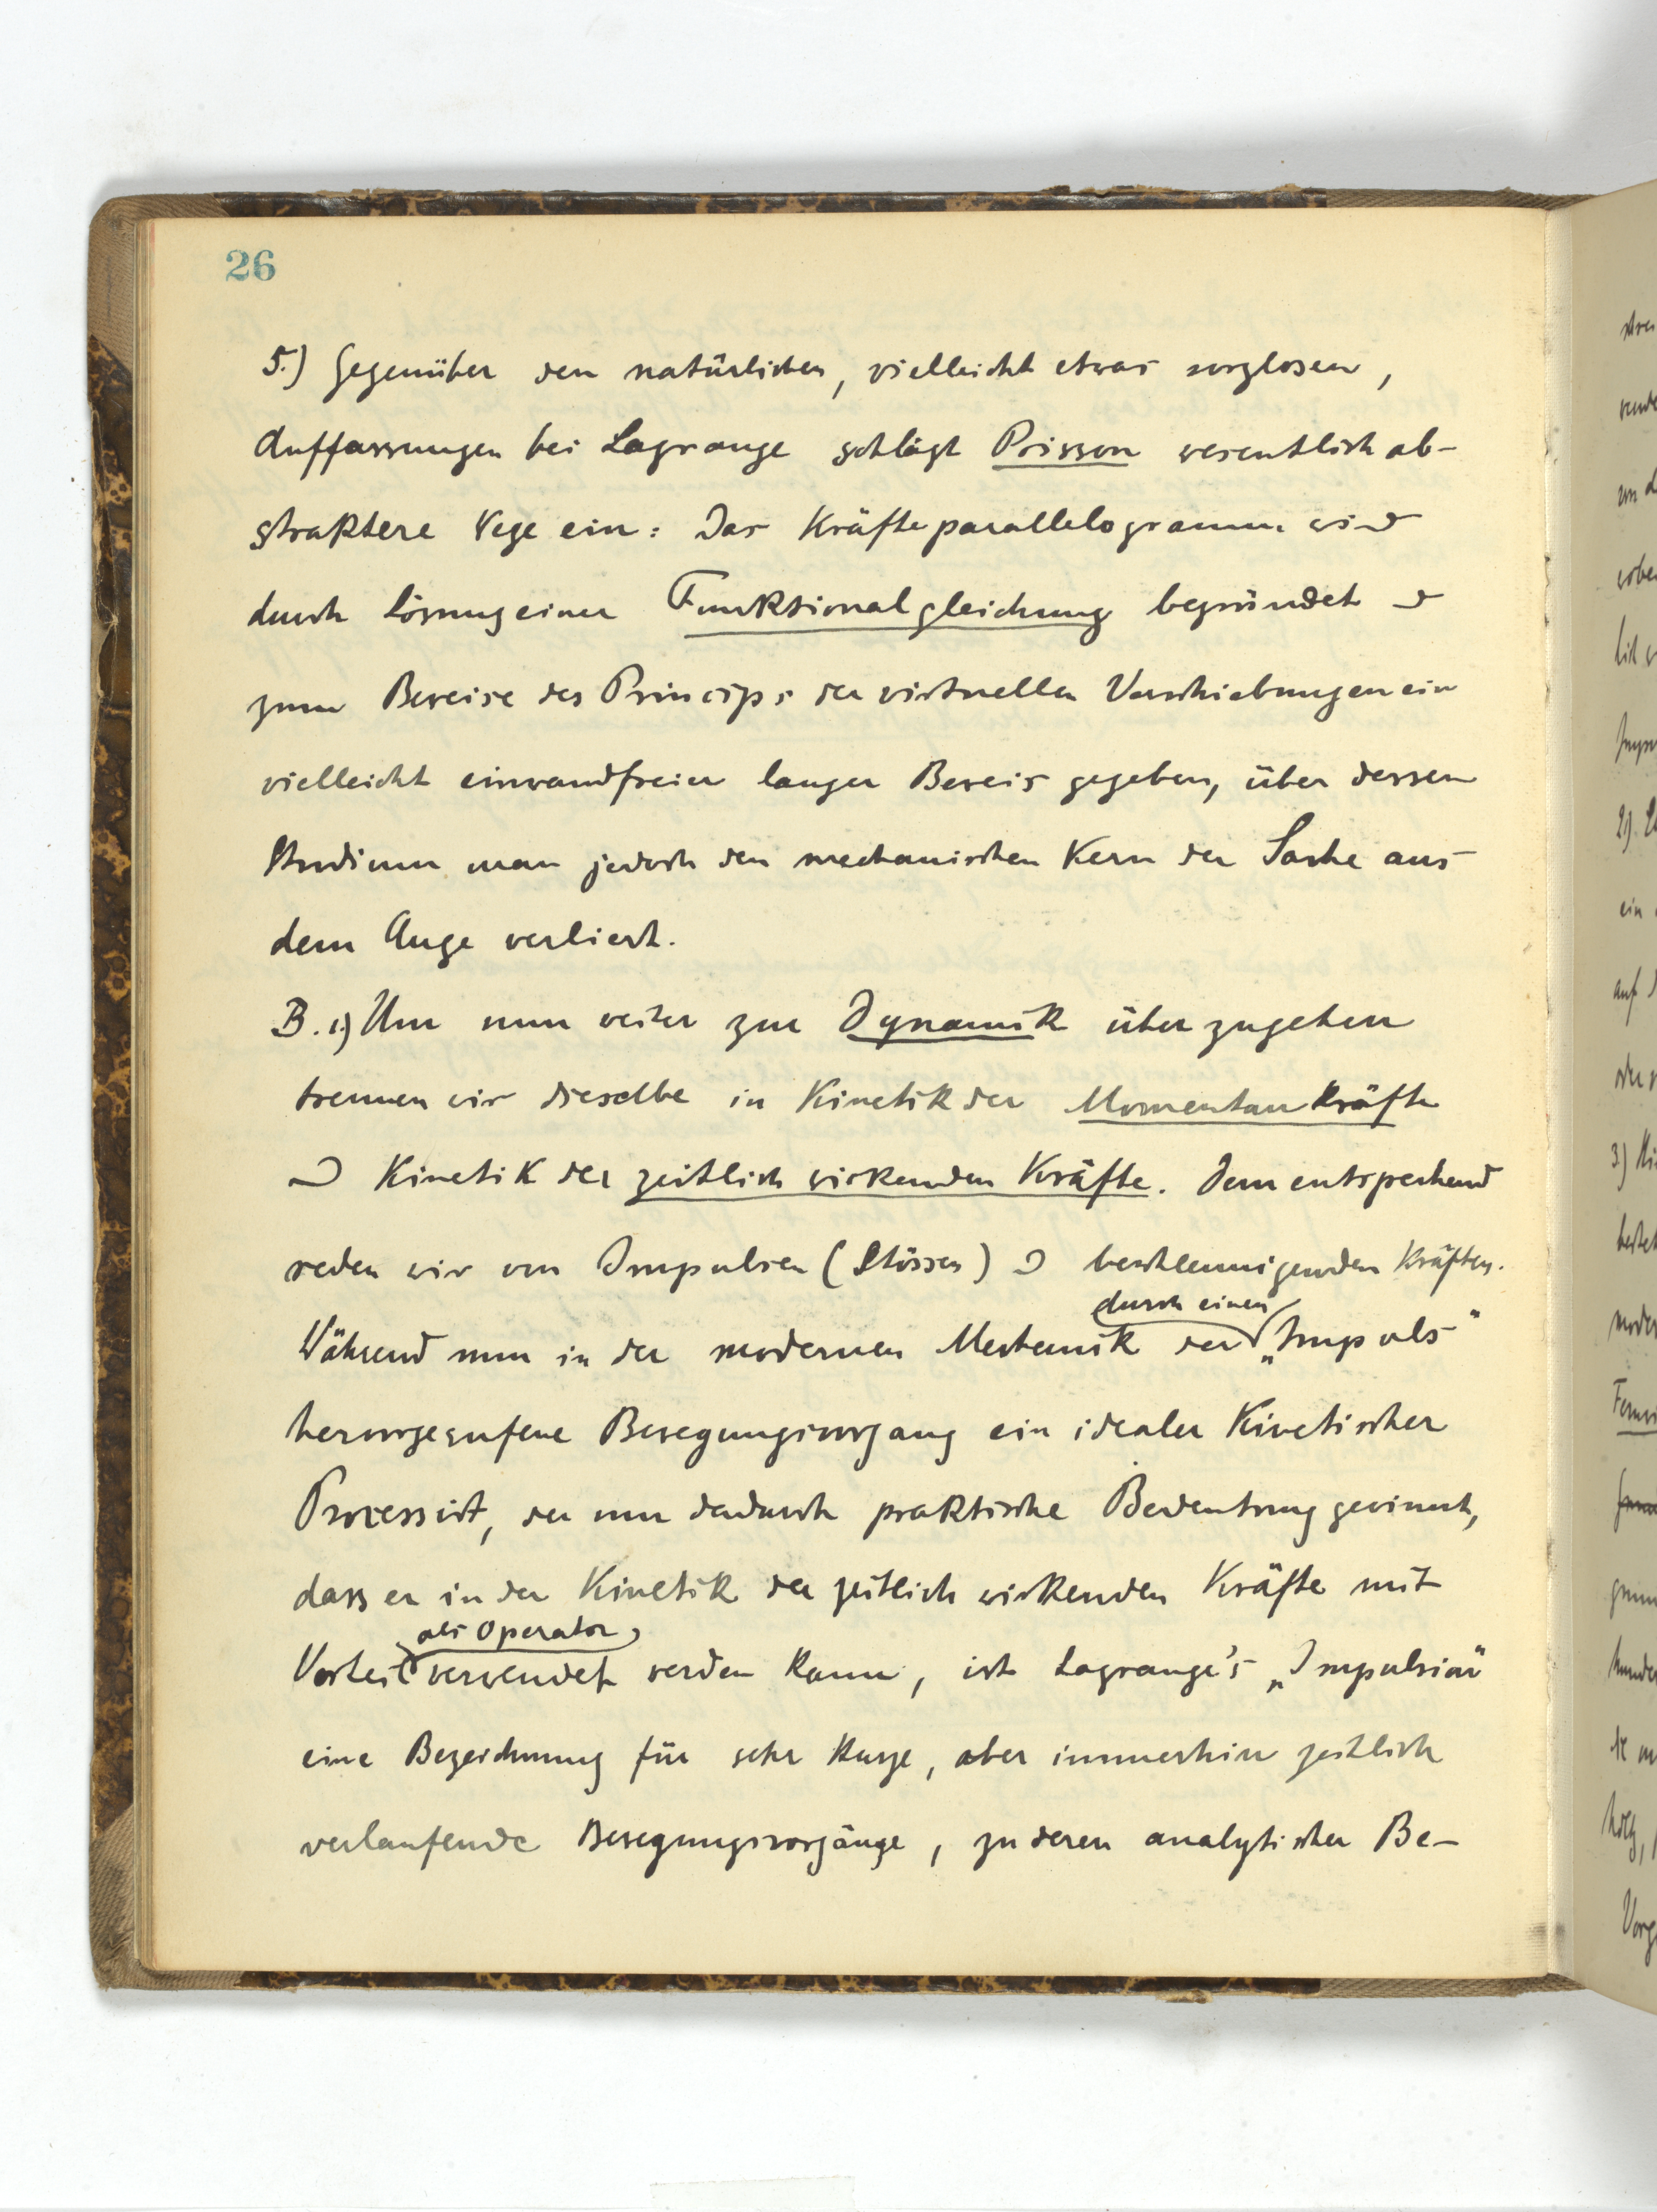 26
5.) Gegenüber den natürlichen, vielleicht etwas sorglosen,
Auffassungen bei Lagrange schlägt Poisson wesentlich ab-
straktere Wege ein: Das Kräfteparallelogramm wird
durch Lösung einer Funktionalgleichung begründet &
zum Beweise des Princips der virtuellen Verschiebungen ein
vielleicht einwandfreier langer Beweis gegeben, über dessen
Studium man jedoch den mechanischen Kern der Sache aus
dem Auge verliert.
B. 1) Um nun weiter zur Dynamik überzugehen
trennen wir dieselbe in Kinetik der Momentankräfte
& Kinetik der zeitlich wirkenden Kräfte. Dementsprechend
reden wir von Impulsen (Stössen) & beschleunigenden Kräften.
durch einen
Während nun in der modernen Mechanik der „Impuls"
hervorgerufene Bewegungsvorgang ein idealer kinetischer
Prozess ist, der nur dadurch praktische Bedeutung gewinnt,
dass er in der Kinetik der zeitlich wirkenden Kräfte mit
als Operator
Vorteil verwendet werden kann, ist Lagrange's „Impulsion"
eine Bezeichnung für sehr kurze, aber immerhin zeitlich
verlaufende Bewegungsvorgänge, zu deren analytischer Be-